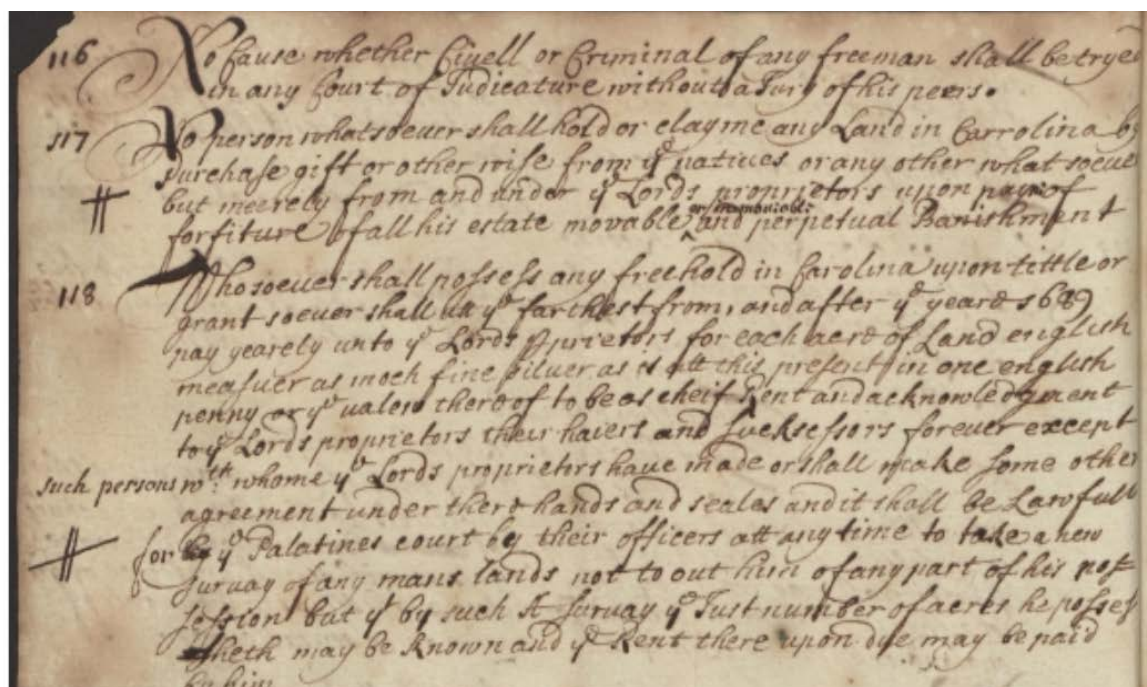 116 No Cause whether Civell or Criminal of any freeman shall be tryed
in any Court of Judicature without a Jury of his peers.
117 No person whatsoever shall hold or clayme any Land in Carrolina by
purchase gift or other wise from yᵉ natives or any other what soeve
but meerely from and under yᵉ Lords proprietors upon paine of
forfiture of all his estate movable ^ or immovable and perpetual Banishment
118 Whosoever shall possess any freehold in Carolina upon tittle or
grant soever shall att yᵉ farthest from, and after yᵉ yeare 1689
pay yearely unto yᵉ Lords pprietors for each acre of Land english
measuer as moch fine silver as is att this present in one english
penny or yᵉ valew thereof to be as cheif Rent and acknowledgment
to yᵉ Lords proprietors their haiers and sucksessors forever except
such persons wᵗʰ whome yᵉ Lords proprietors have made or shall make some other
agreement under there hands and seales and it shall be Lawfull
for by yᵉ Palatines court by their officers att any time to take a new
survay of any mans lands not to out him of any part of his pos
session but yᵗ by such survay yᵉ Just number of acres he posses
sheth may be known and yᵉ Rent there upon due may be paid
by him